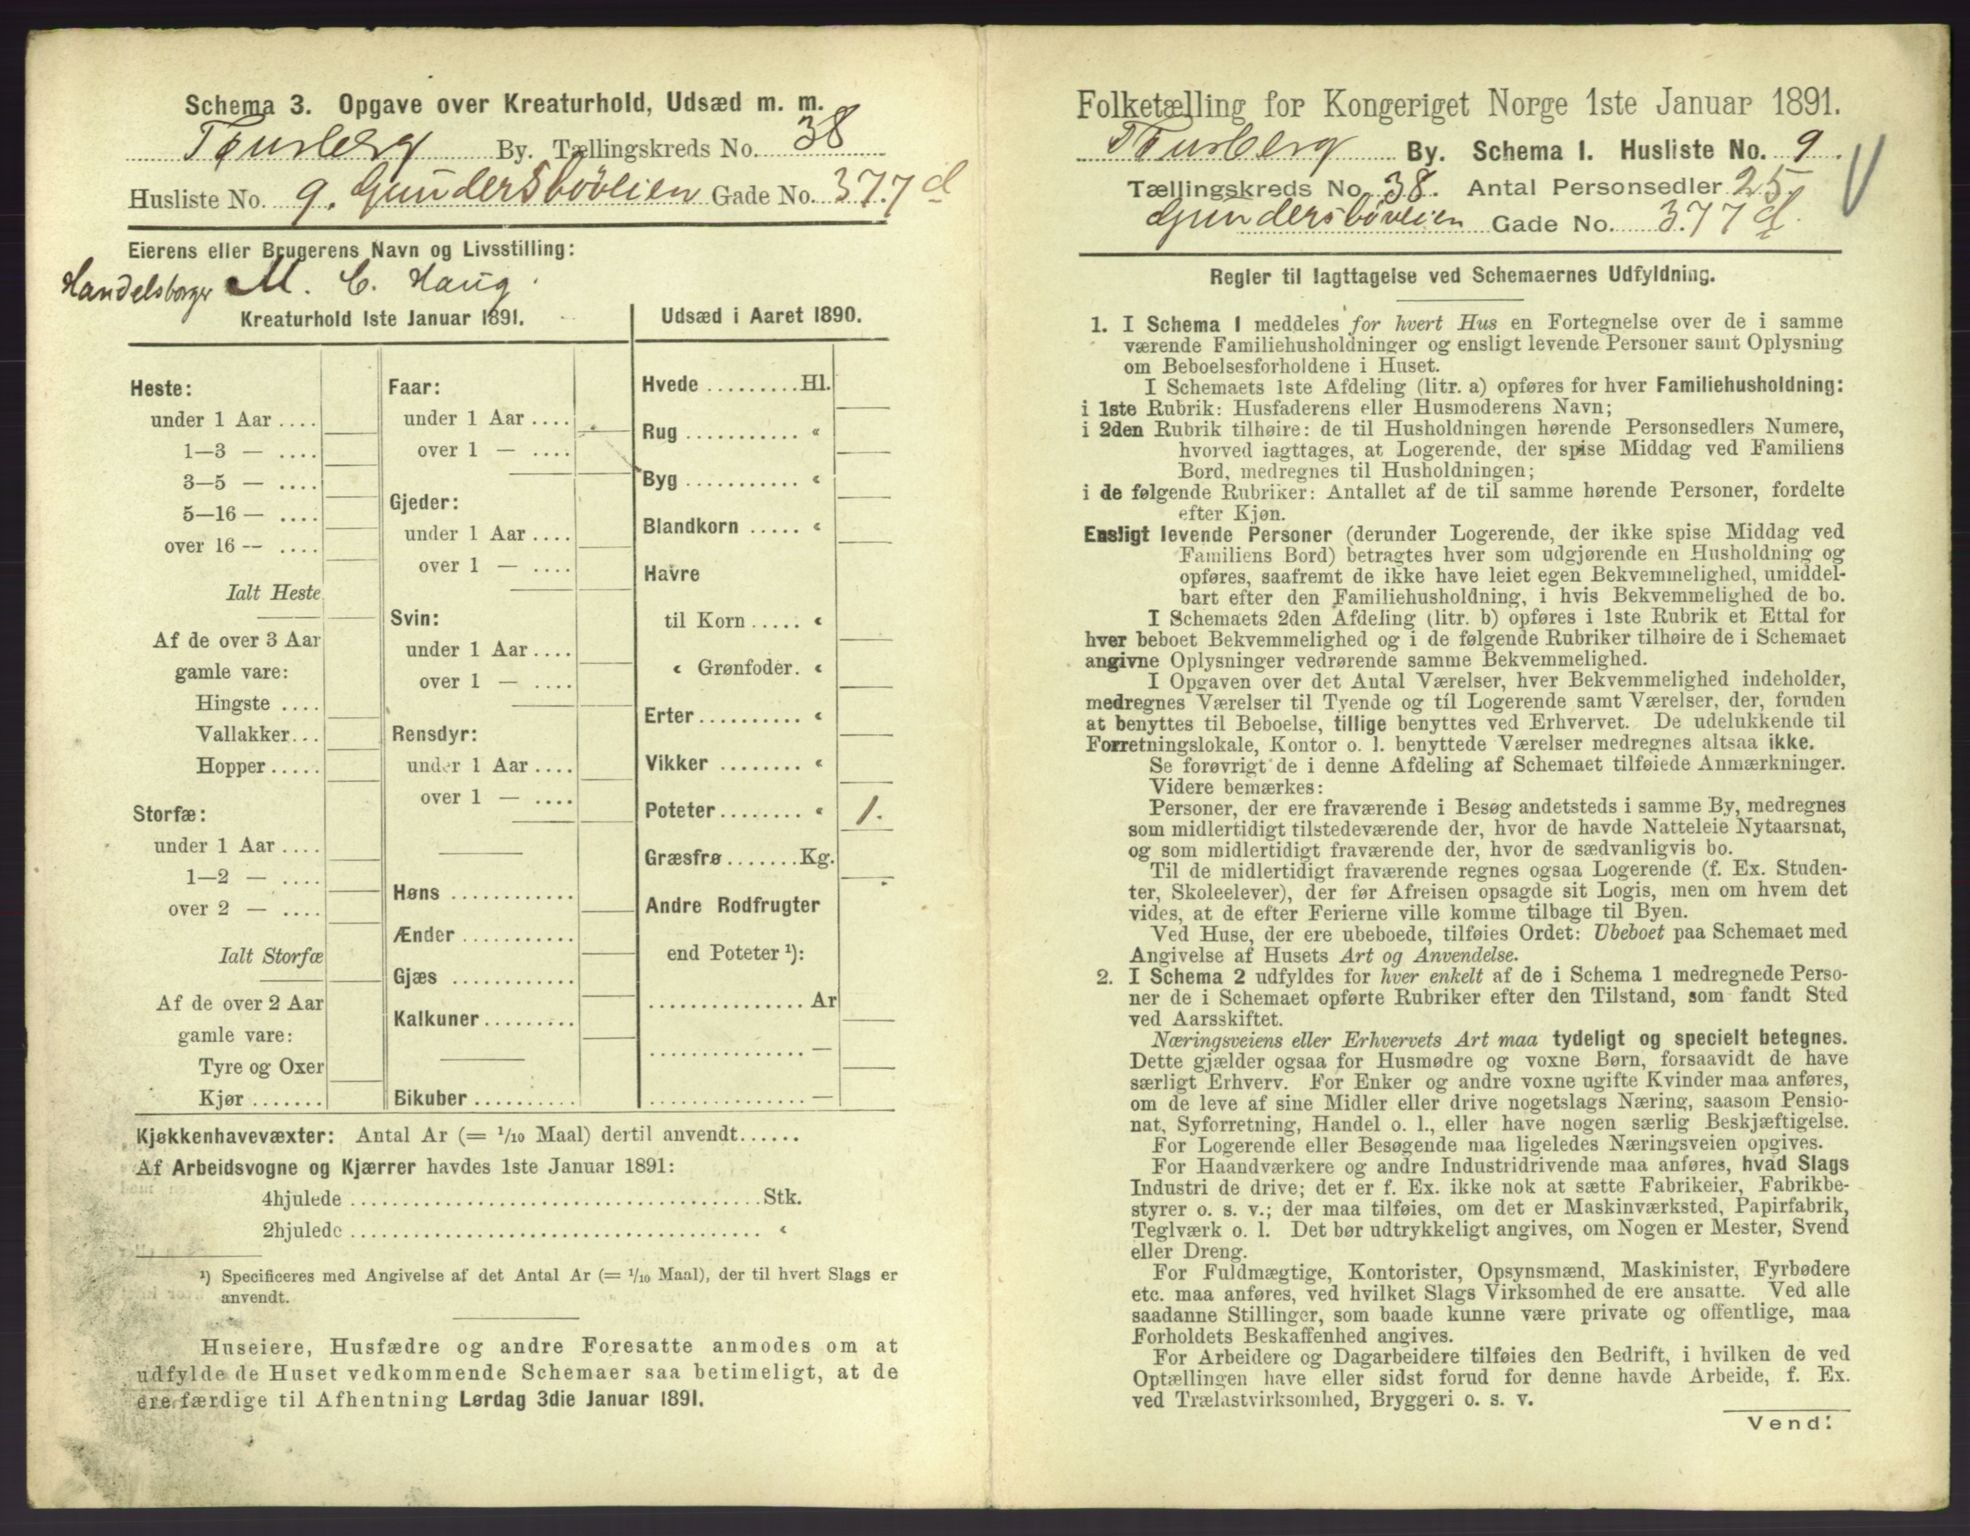 Schema 3. Opgave over Kreaturhold, Udsæd m. m.
Tønsberg By. Tællingskreds No. 38
Husliste No. 9. Gundersbøvleien Gade No. 377 d
Eierens eller Brugerens Navn og Livsstilling:
Handelsborger M. C. Haug.
Kreaturhold 1ste Januar 1891.
Heste:
under 1 Aar ....
1—3 — ....
3—5 — ....
5—16 — ....
over 16 — ....
Ialt Heste
Af de over 3 Aar
gamle vare:
Hingste ....
Vallakker...
Hopper.....
Storfæ:
under 1 Aar ....
1—2 — ....
over 2 — ....
Ialt Storfæ
Af de over 2 Aar
gamle vare:
Tyre og Oxer
Kjør.......
Faar:
under 1 Aar....
over 1 — ....
Gjeder:
under 1 Aar....
over 1 — ....
Svin:
under 1 Aar....
over 1 — ....
Rensdyr:
under 1 Aar....
over 1 — ....
Høns ............
Ænder...........
Gjæs ............
Kalkuner.........
Bikuber..........
Udsæd i Aaret 1890.
Hvede.........Hl.
Rug........... «
Byg........... «
Blandkorn ..... «
Havre
til Korn ..... «
« Grønfoder. «
Erter.......... «
Vikker ........ «
Poteter........ « 1.
Græsfrø.......Kg.
Andre Rodfrugter
end Poteter ¹):
...............Ar
...............—
...............—
Kjøkkenhavevæxter: Antal Ar (= 1/10 Maal) dertil anvendt......
Af Arbeidsvogne og Kjærrer havdes 1ste Januar 1891:
4hjulede .....................................Stk.
2hjulede ..................................... «
¹) Specificeres med Angivelse af det Antal Ar (= 1/10 Maal), der til hvert Slags er
anvendt.
Huseiere, Husfædre og andre Foresatte anmodes om at
udfylde de Huset vedkommende Schemaer saa betimeligt, at de
ere færdige til Afhentning Lørdag 3die Januar 1891.
Folketælling for Kongeriget Norge 1ste Januar 1891.
Tønsberg By. Schema 1. Husliste No. 9.
Tællingskreds No. 38. Antal Personsedler 25.
Gundersbøvleien Gade No. 377 d.
Regler til Iagttagelse ved Schemaernes Udfyldning.
1. I Schema 1 meddeles for hvert Hus en Fortegnelse over de i samme
værende Familiehusholdninger og ensligt levende Personer samt Oplysning
om Beboelsesforholdene i Huset.
I Schemaets 1ste Afdeling (litr. a) opføres for hver Familiehusholdning:
i 1ste Rubrik: Husfaderens eller Husmoderens Navn;
i 2den Rubrik tilhøire: de til Husholdningen hørende Personsedlers Numere,
hvorved iagttages, at Logerende, der spise Middag ved Familiens
Bord, medregnes til Husholdningen;
i de følgende Rubriker: Antallet af de til samme hørende Personer, fordelte
efter Kjøn.
Ensligt levende Personer (derunder Logerende, der ikke spise Middag ved
Familiens Bord) betragtes hver som udgjørende en Husholdning og
opføres, saafremt de ikke have leiet egen Bekvemmelighed, umiddel-
bart efter den Familiehusholdning, i hvis Bekvemmelighed de bo.
I Schemaets 2den Afdeling (litr. b) opføres i 1ste Rubrik et Ettal for
hver beboet Bekvemmelighed og i de følgende Rubriker tilhøire de i Schemaet
angivne Oplysninger vedrørende samme Bekvemmelighed.
I Opgaven over det Antal Værelser, hver Bekvemmelighed indeholder,
medregnes Værelser til Tyende og til Logerende samt Værelser, der, foruden
at benyttes til Beboelse, tillige benyttes ved Erhvervet. De udelukkende til
Forretningslokale, Kontor o. l. benyttede Værelser medregnes altsaa ikke.
Se forøvrigt de i denne Afdeling af Schemaet tilføiede Anmærkninger.
Videre bemærkes:
Personer, der ere fraværende i Besøg andetsteds i samme By, medregnes
som midlertidigt tilstedeværende der, hvor de havde Natteleie Nytaarsnat,
og som midlertidigt fraværende der, hvor de sædvanligvis bo.
Til de midlertidigt fraværende regnes ogsaa Logerende (f. Ex. Studen-
ter, Skoleelever), der før Afreisen opsagde sit Logis, men om hvem det
vides, at de efter Ferierne ville komme tilbage til Byen.
Ved Huse, der ere ubeboede, tilføies Ordet: Ubeboet paa Schemaet med
Angivelse af Husets Art og Anvendelse.
2. I Schema 2 udfyldes for hver enkelt af de i Schema 1 medregnede Perso-
ner de i Schemaet opførte Rubriker efter den Tilstand, som fandt Sted
ved Aarsskiftet.
Næringsveiens eller Erhvervets Art maa tydeligt og specielt betegnes.
Dette gjælder ogsaa for Husmødre og voxne Børn, forsaavidt de have
særligt Erhverv. For Enker og andre voxne ugifte Kvinder maa anføres,
om de leve af sine Midler eller drive nogetslags Næring, saasom Pensio-
nat, Syforretning, Handel o. l., eller have nogen særlig Beskjæftigelse.
For Logerende eller Besøgende maa ligeledes Næringsveien opgives.
For Haandværkere og andre Industridrivende maa anføres, hvad Slags
Industri de drive; det er f. Ex. ikke nok at sætte Fabrikeier, Fabrikbe-
styrer o. s. v.; der maa tilføies, om det er Maskinværksted, Papirfabrik,
Teglværk o. l. Det bør udtrykkeligt angives, om Nogen er Mester, Svend
eller Dreng.
For Fuldmægtige, Kontorister, Opsynsmænd, Maskinister, Fyrbødere
etc. maa anføres, ved hvilket Slags Virksomhed de ere ansatte. Ved alle
saadanne Stillinger, som baade kunne være private og offentlige, maa
Forholdets Beskaffenhed angives.
For Arbeidere og Dagarbeidere tilføies den Bedrift, i hvilken de ved
Optællingen have eller sidst forud for denne havde Arbeide, f. Ex.
ved Trælastvirksomhed, Bryggeri o. s. v.
Vend!